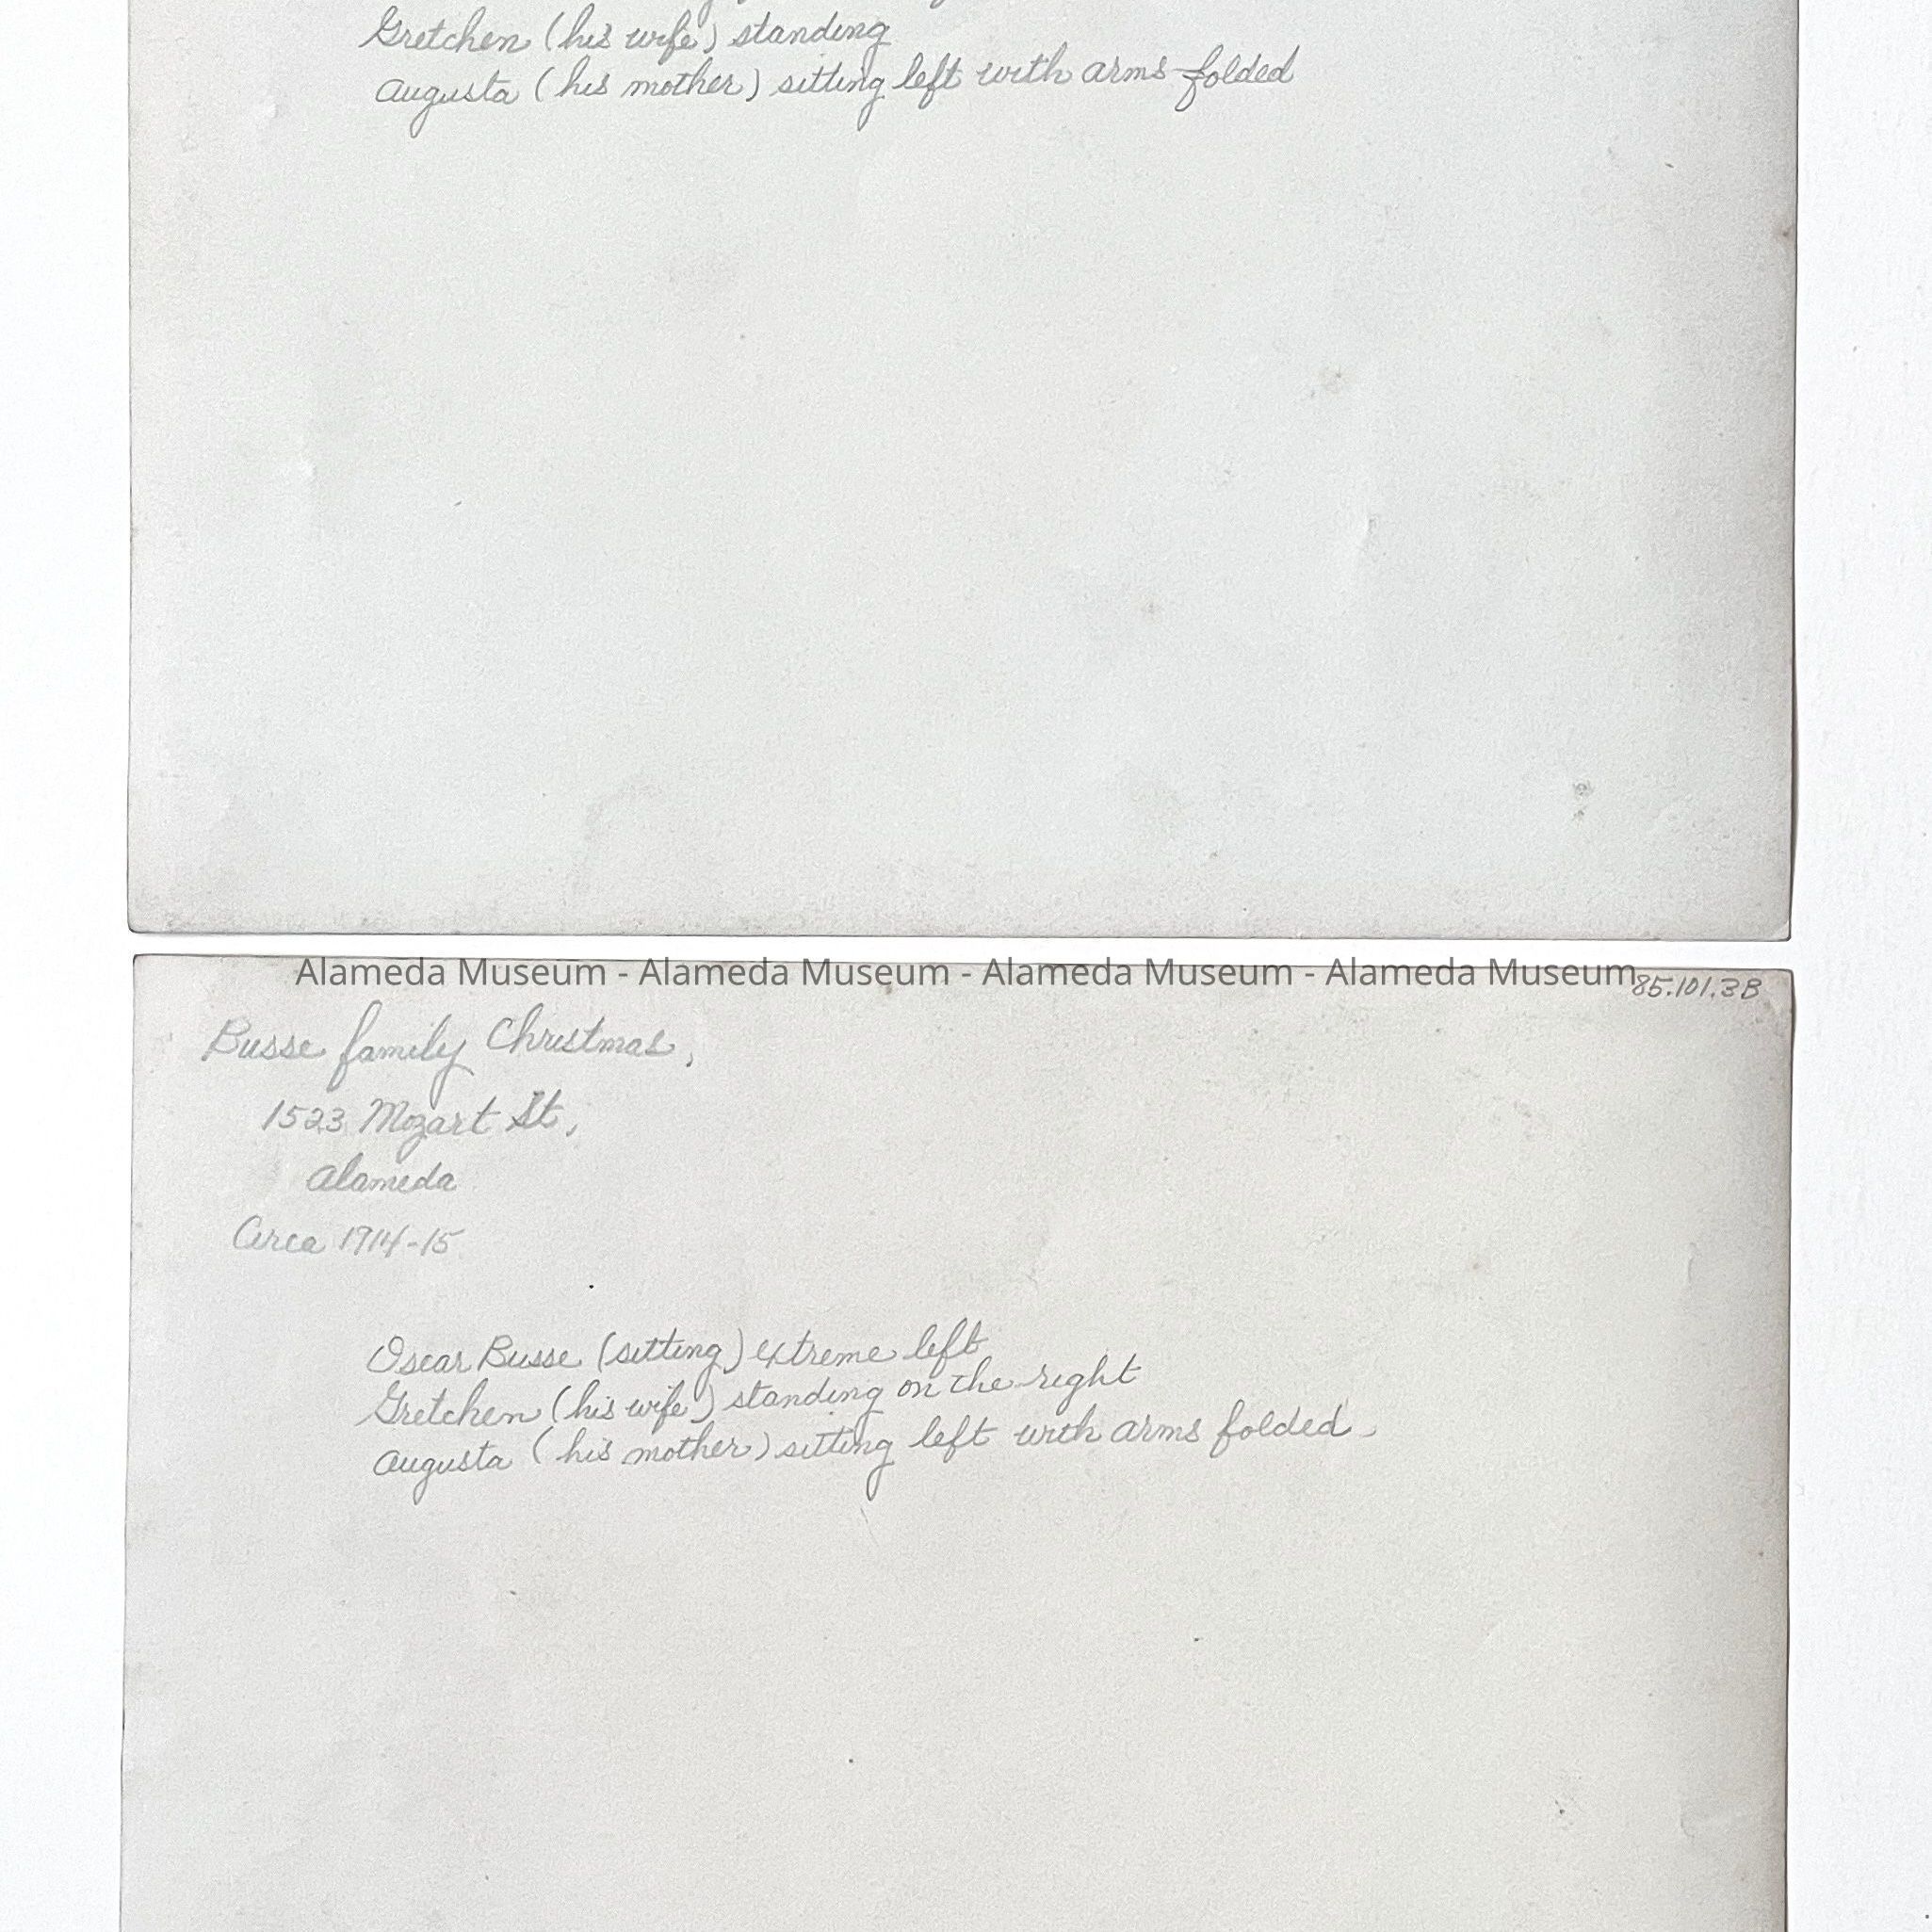 Gretchen (his wife) standing
Augusta (his mother) sitting left with arms folded
Alameda Museum - Alameda Museum - Alameda Museum - Alameda Museum
85.101.3B
Busse family Christmas,
1523 Mozart St,
Alameda
Circa 1914-15
Oscar Busse (sitting) extreme left
Gretchen (his wife) standing on the right
Augusta (his mother) sitting left with arms folded.